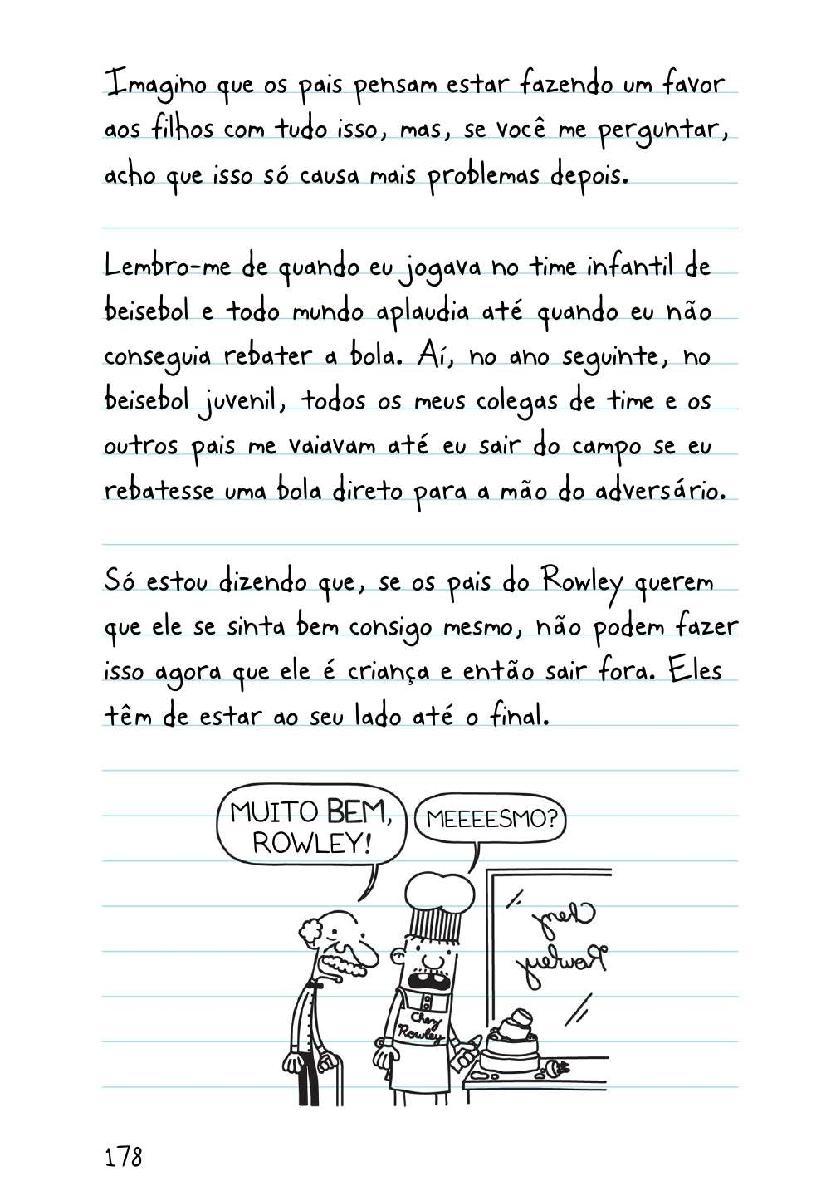 Imagino que os pais pensam estar fazendo um favor
aos filhos com tudo isso, mas, se você me perguntar,
acho que isso só causa mais problemas depois.
Lembro-me de quando eu jogava no time infantil de
beisebol e todo mundo aplaudia até quando eu não
conseguia rebater a bola. Aí, no ano seguinte, no
beisebol juvenil, todos os meus colegas de time e os
outros pais me vaiavam até eu sair do campo se eu
rebatesse uma bola direto para a mão do adversário.
Só estou dizendo que, se os pais do Rowley querem
que ele se sinta bem consigo mesmo, não podem fazer
isso agora que ele é criança e então sair fora. Eles
têm de estar ao seu lado até o final.
MUITO BEM,
ROWLEY!
MEEEESMO?
Chez
Rowley
Chez
Rowley
178